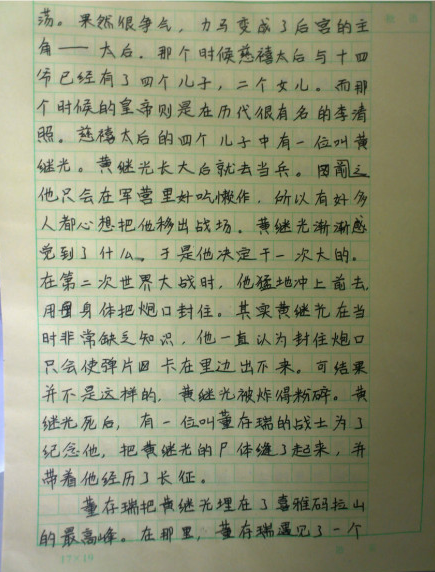 荡。果然很争气，力马变成了后宫的主
角——太后．那个时候慈禧太后与十四
爷已经有了四个儿子，二个女儿。而那
个时候的皇帝则是在历代很有名的李清
照。慈禧太后的四个儿子中有一位叫黄
继光。黄继光长大后就去当兵。因前之
他只会在军营里好吃懒作，所以有好多
人都心想把他移出战场。黄继光渐渐感
觉到了什么。于是他决定干一次大的。
在第二次世界大战时，他猛地冲上前去，
用身体把炮口封住。其实黄继光在当
时非常缺乏知识，他一直认为封住炮口
只会使弹片卡在里边出不来。可结果
并不是这样的，黄继光被炸得粉碎。黄
继光死后，有一位叫董存瑞的战士为了
纪念他，把黄继光的尸体缝了起来，并
带着他经历了长征。
董存瑞把黄继光埋在了喜雅码拉山
的最高峰。在那里，董存瑞遇见了一个
17×19